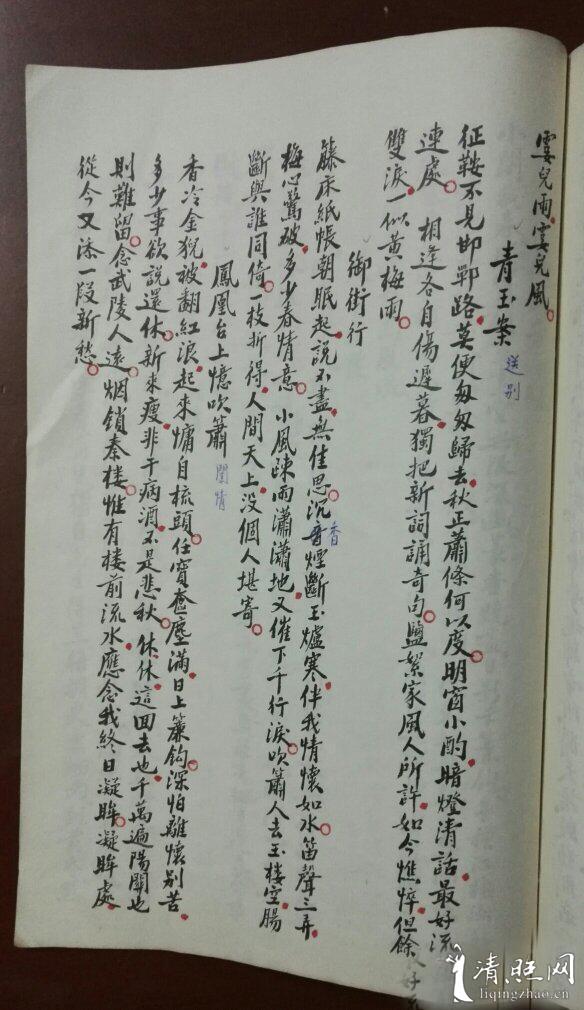 霎兒雨霎兒風
青玉案 送别
征鞍不見邯鄲路莫便匆匆歸去秋正蕭條何以度明窗小酌暗燈清話最好流
連處 相逢各自傷遲暮獨把新詞誦奇句鹽絮家風人所許如今憔悴但餘
雙淚一似黄梅雨
御街行
藤床紙帳朝眠起說不盡無佳思沉香煙斷玉爐寒伴我情懷如水笛聲三弄
梅心驚破多少春情意 小風疎雨瀟瀟地又催下千行淚吹簫人去玉楼空腸
斷與誰同倚一枝折得人間天上没個人堪寄
鳳凰台上憶吹簫 閨情
香冷金猊被翻紅浪起來慵自梳頭任寳奩塵滿日上簾鈎深怕離懷别苦
多少事欲說還休新來瘦非干病酒不是悲秋休休這回去也千萬遍陽關也
則難留念武陵人遠烟鎖秦楼惟有楼前流水應念我終日凝眸凝眸處
從今又添一段新愁
清照网
liqingzhao.cn